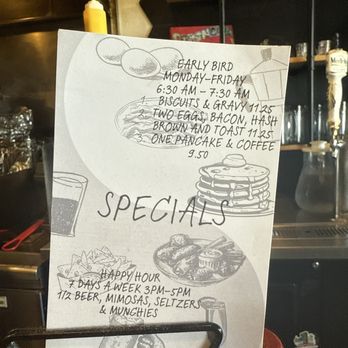 EARLY BIRD
MONDAY-FRIDAY
6:30 AM - 7:30 AM
1. BISCUITS & GRAVY 11.25
2. TWO EGGS, BACON, HASH
BROWN AND TOAST 11.25
3. ONE PANCAKE & COFFEE
9.50
SPECIALS
HAPPY HOUR
7 DAYS A WEEK 3PM-5PM
1/2 BEER, MIMOSAS, SELTZERS
& MUNCHIES